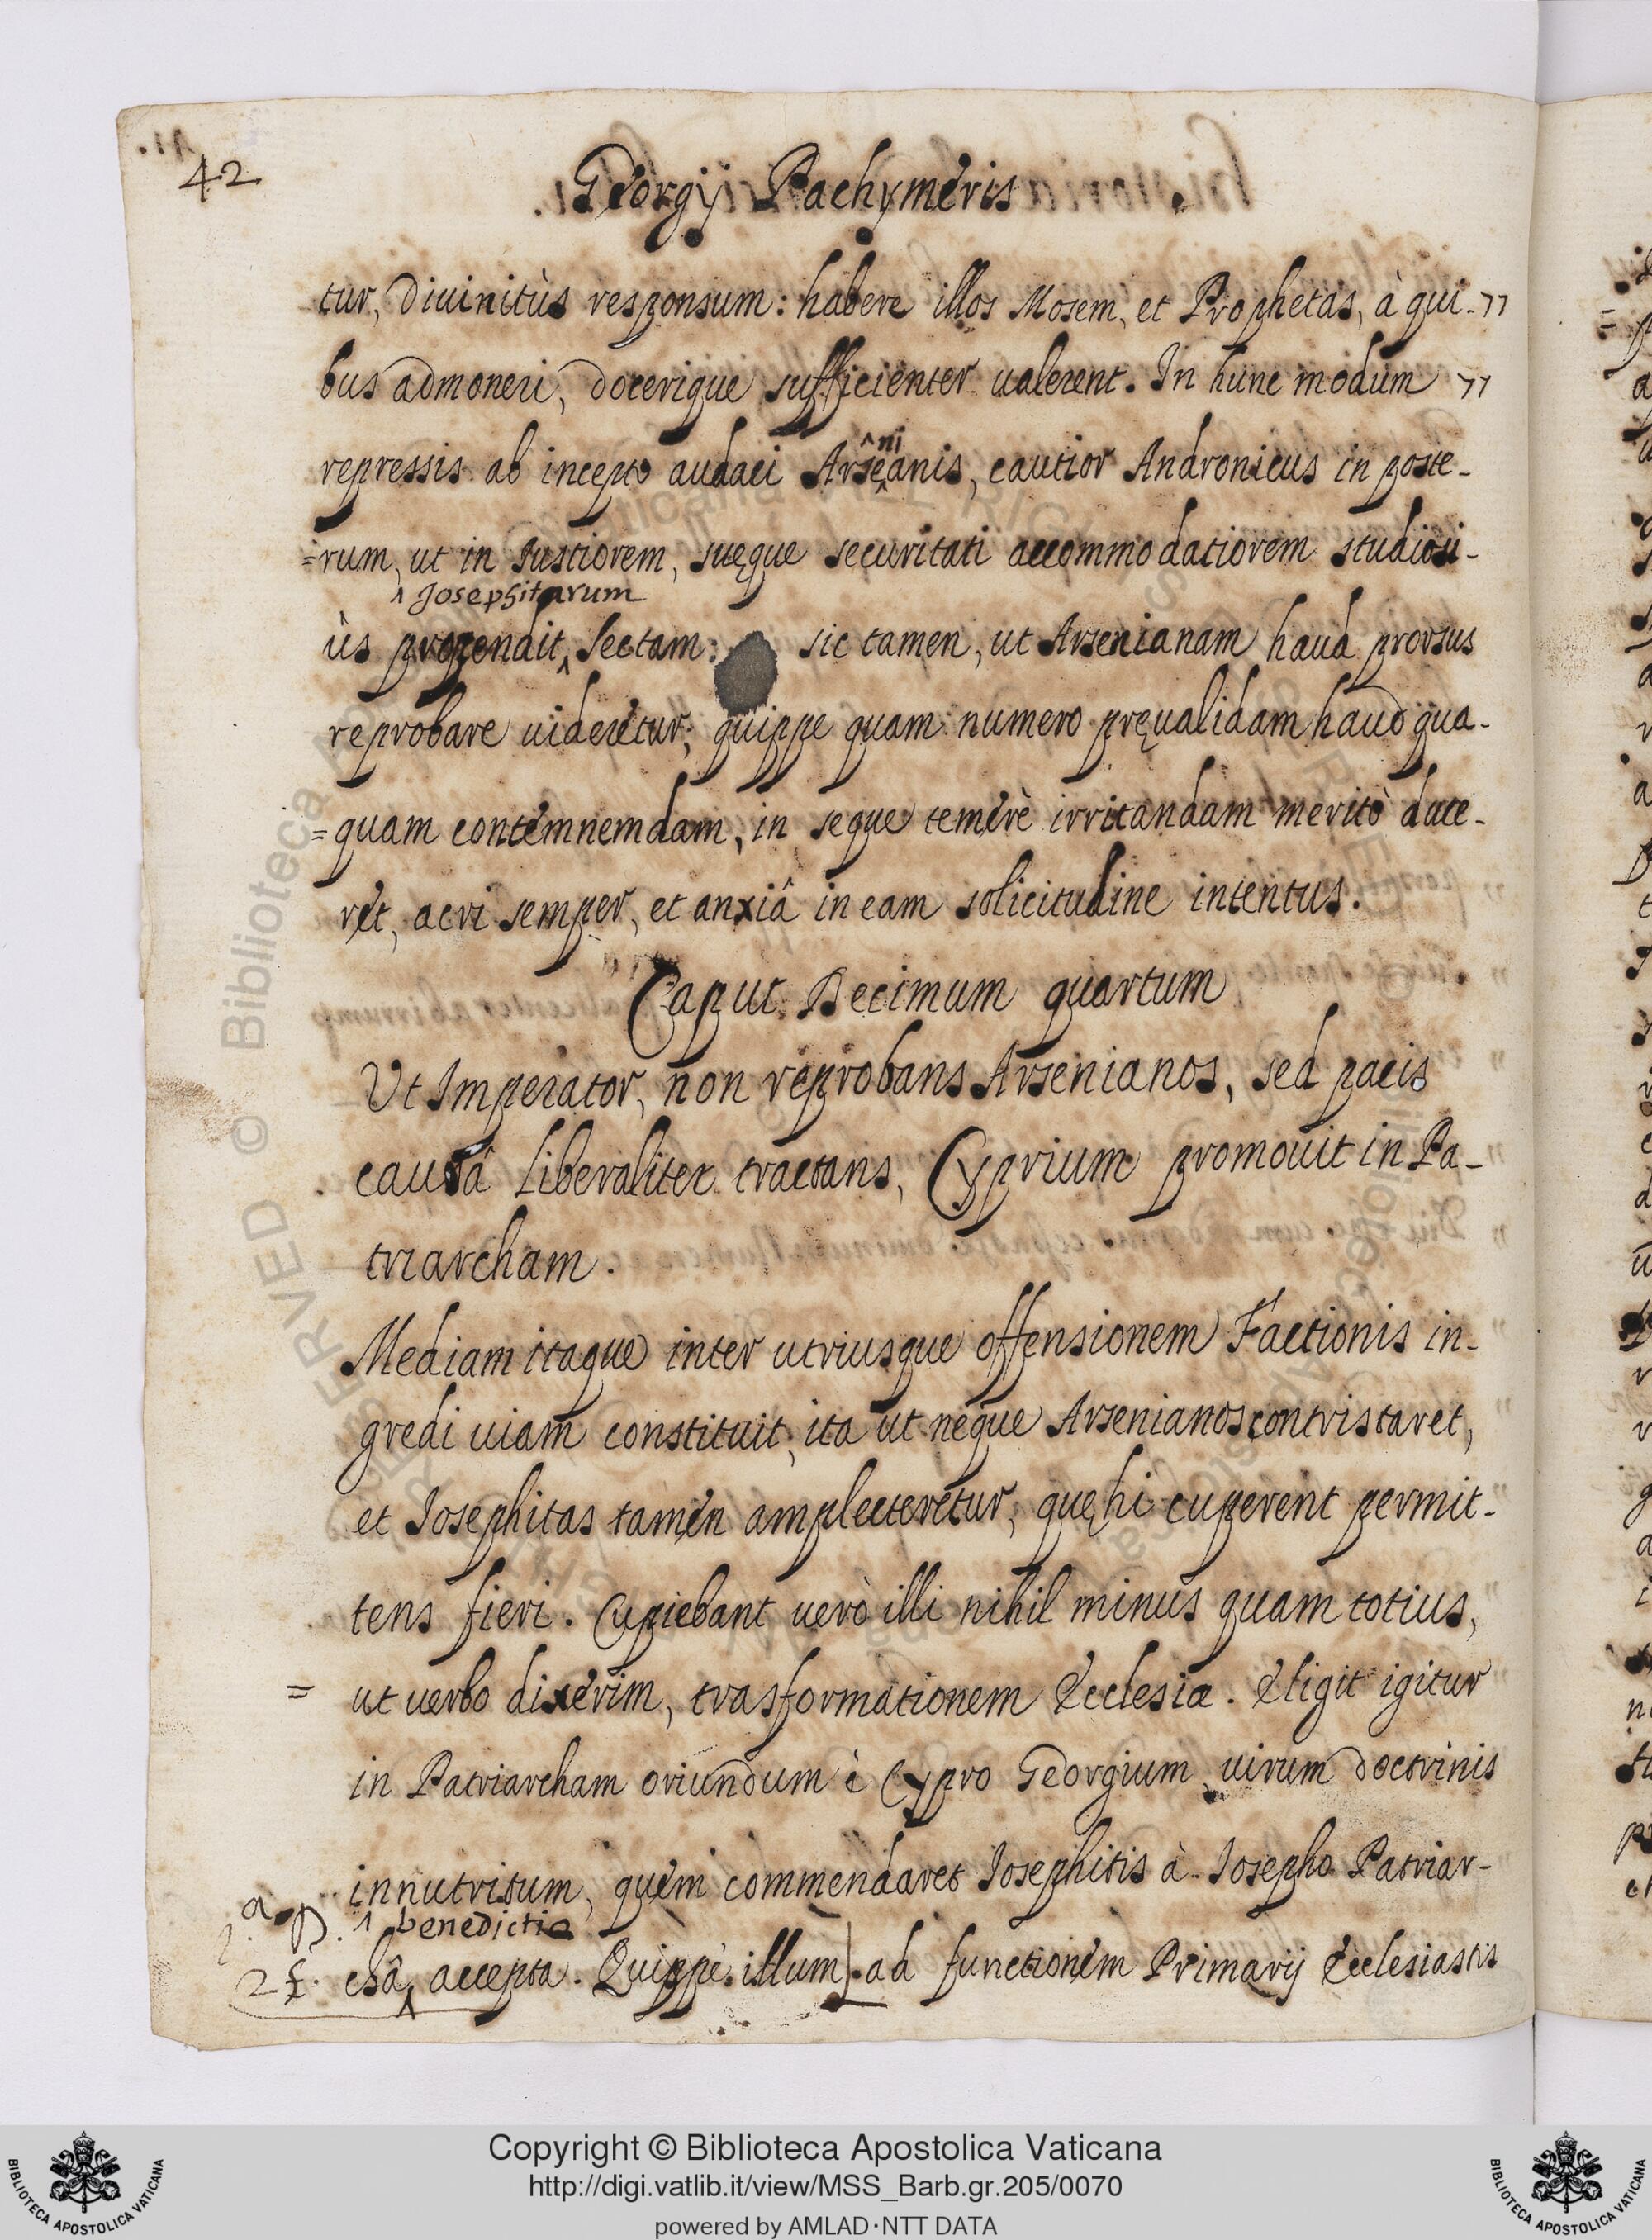 42
Georgij Pachymeris
tur, Diuinitùs responsum: habere illos Mosem, et Prophetas, à qui-"
bus admoneri, docerique sufficienter ualerent. In hunc modum "
^ni
repressis ab incepto audaci Arse‸anis, cautior Andronicus in poste-
=rum, ut in Iustiorem, suęque securitati accommodatiorem studiosi-
^ Josephitarum
ùs propendit‸ sectam: sic tamen, ut Arsenianam haud prorsus
reprobare uideretur; quippe quam numero pręualidam haudqua-
=quam contemnemdam, in seque temerè irritandam meritò duce-
ret, acri semper, et anxiâ in eam solicitudine intentus.
Caput Decimum quartum
Vt Imperator, non reprobans Arsenianos, sed pacis
causâ Liberaliter tractans, Cyprium promouit in Pa-
triarcham.
Mediam itaque inter utriusque offensionem Factionis in-
gredi uiam constituit, ita ut neque Arsenianos contristaret,
et Iosephitas tamen amplecteretur, quę hi cuperent permit-
tens fieri. Cupiebant uerò illi nihil minus quam totius,
= ut uerbo dixerim, trasformationem Ecclesiæ. Eligit igitur
in Patriarcham oriundum è Cypro Georgium uirum doctrinis
innutritum, quem commendaret Iosephitis à Iosepho Patriar-
^ benedictio
châ‸ accepta. Quippe illum]. ad functionem Primarij Ecclesiastis
Copyright © Biblioteca Apostolica Vaticana
http://digi.vatlib.it/view/MSS_Barb.gr.205/0070
powered by AMLAD·NTT DATA
BIBLIOTECA APOSTOLICA VATICANA
BIBLIOTECA APOSTOLICA VATICANA